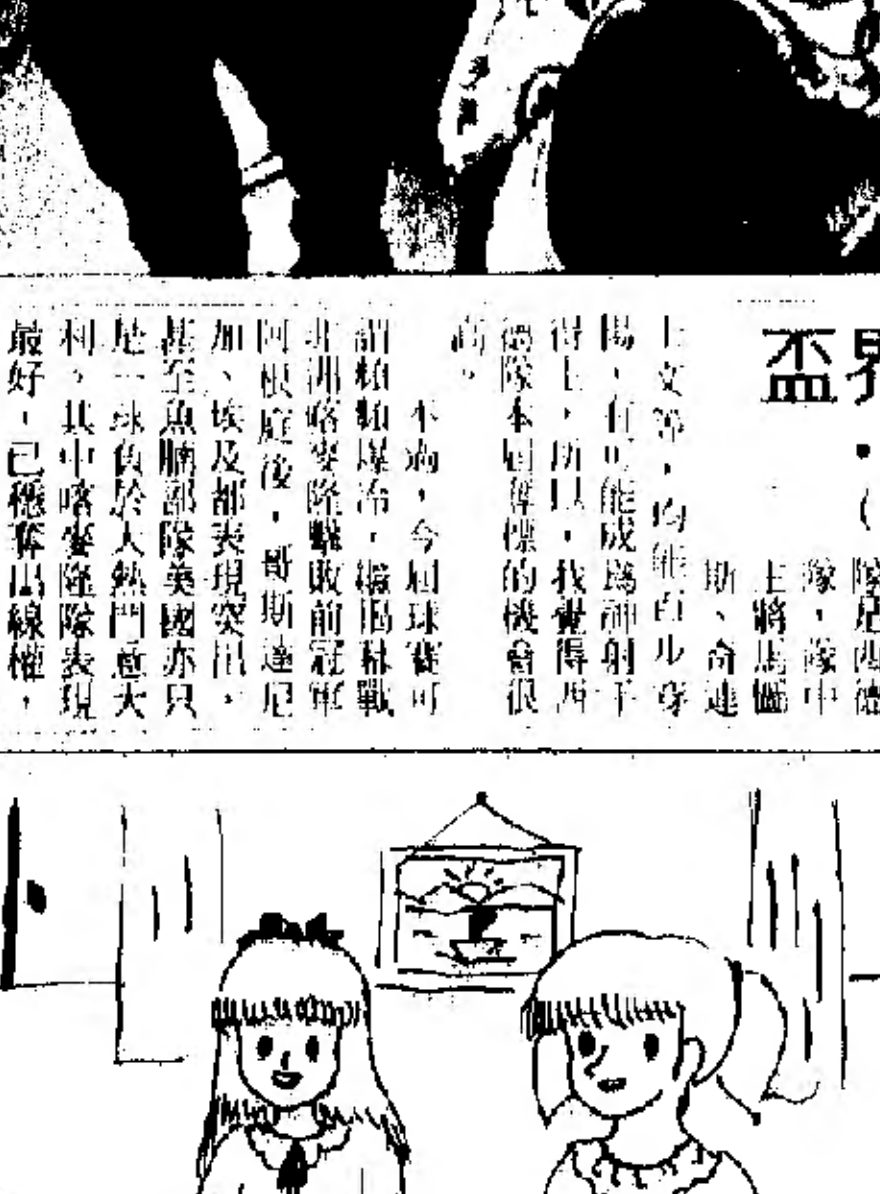 界・（
盃
隊是西德
隊，隊中
主將馬憾
斯、奇連
士文等，均能百步穿
楊，有可能成為神射手
得主，所以，我覺得西
德隊本屆奪標的機會很
高。
不過，今屆球賽可
謂頻頻爆冷，繼揭幕戰
非洲喀麥隆驟敗前冠軍
阿根庭後，哥斯達尼
加、埃及都表現突出，
甚至魚腩部隊美國亦只
是一球負於大熱門意大
利，其中喀麥隆隊表現
最好，已穩奪出線權，